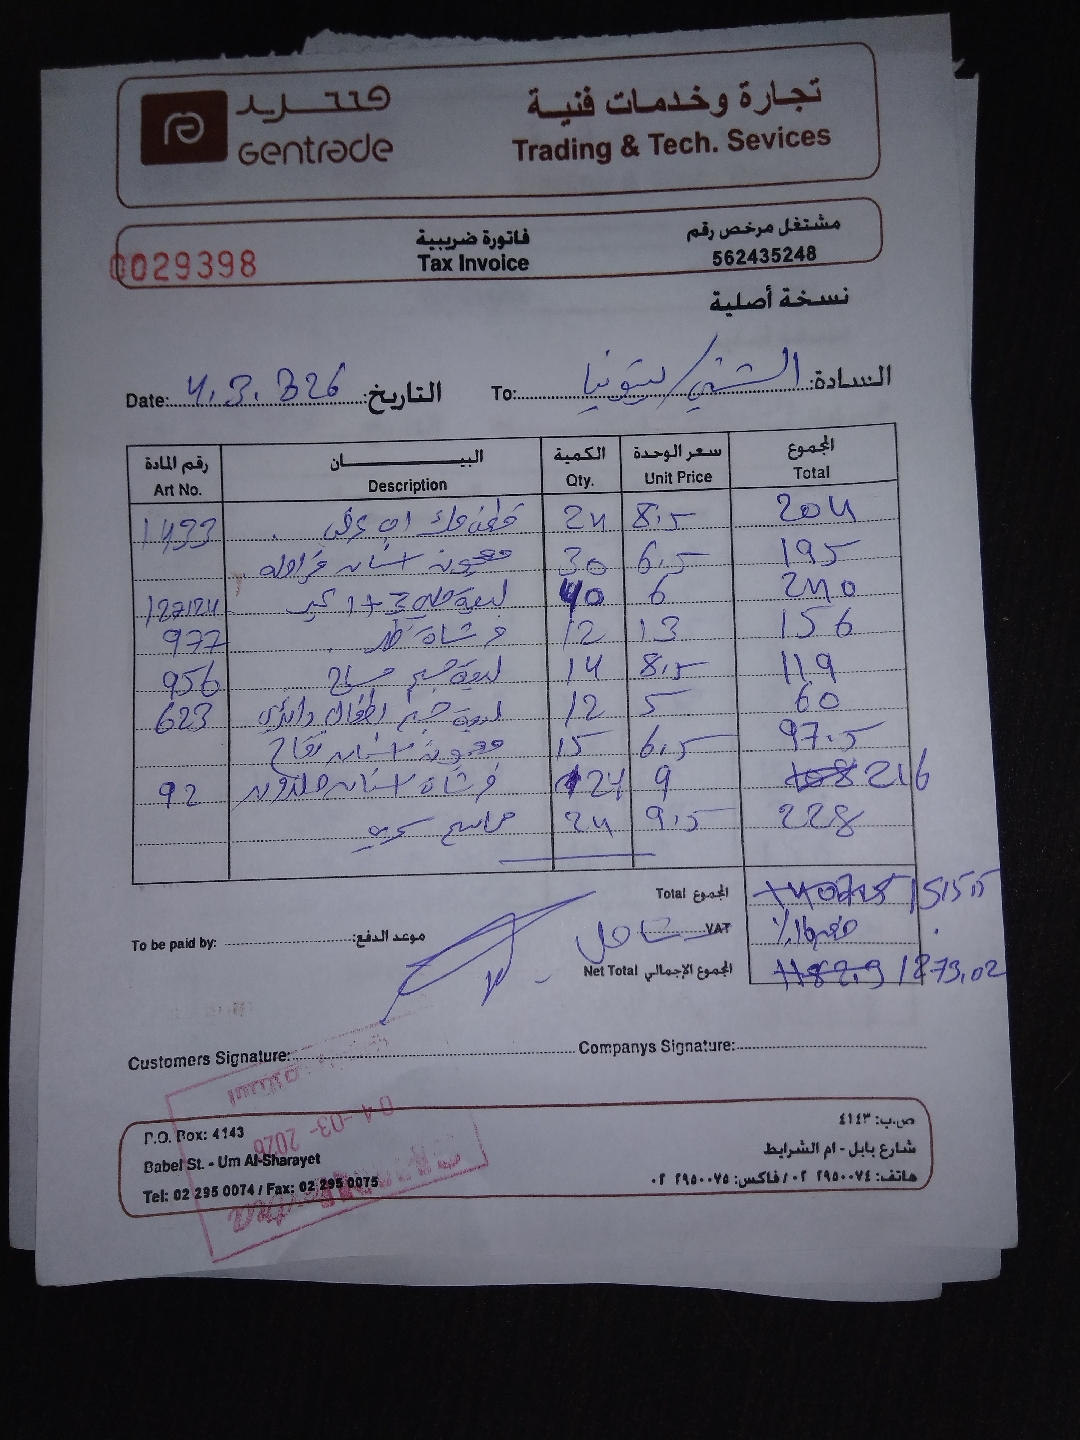 جنتريد
Gentrade
تجارة وخدمات فنية
Trading & Tech. Sevices
0029398
فاتورة ضريبية
Tax Invoice
مشتغل مرخص رقم
562435248
نسخة أصلية
Date: 4.3.2026 التاريخ:
To: الشني / بيتونيا السادة:
رقم المادة البيــــان الكمية سعر الوحدة المجموع
Art No. Description Qty. Unit Price Total
1433 24 8.5 204
معجونة اسنان 30 6.5 195
127124 ليفة 40 6 240
977 فرشاة 12 13 156
956 ليفة جسم مساج 14 8.5 119
623 ليفة جسم اطفال 12 5 60
معجونة اسنان تفاح 15 6.5 97.5
92 فرشاة اسنان 24 9 216
24 9.5 228
Total المجموع 1515.5
VAT 16%
Net Total المجموع الإجمالي 1273.02
شامل
To be paid by: موعد الدفع:
Customers Signature: Companys Signature:
04-03-2026
P.O. Box: 4143
Babel St. - Um Al-Sharayet
Tel: 02 295 0074 / Fax: 02 295 0075
ص.ب: ٤١٤٣
شارع بابل - ام الشرايط
هاتف: ٢٩٥٠٠٧٤ ٠٢ / فاكس: ٢٩٥٠٠٧٥ ٠٢